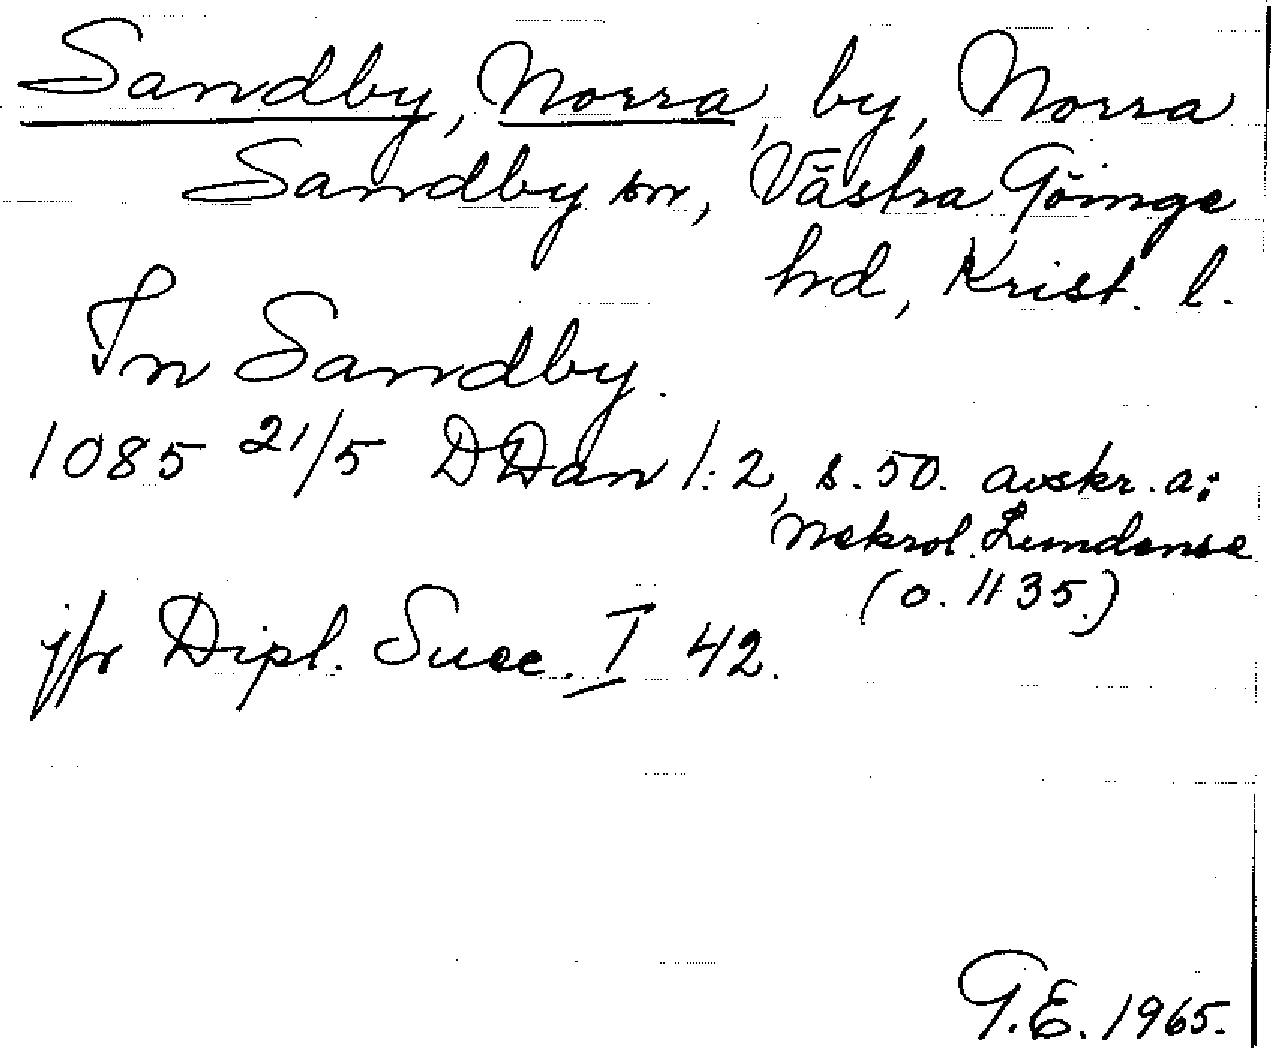 Sandby, Norra, by, Norra
Sandby sn, Västra Göinge
hd, Krist. l.
In Sandby.
1085 21/5 DDan 1:2, s. 50. avskr. a:
Nekrol. Lundense
(o. 1135.)
jfr Dipl. Suec. I 42.
G.E. 1965.